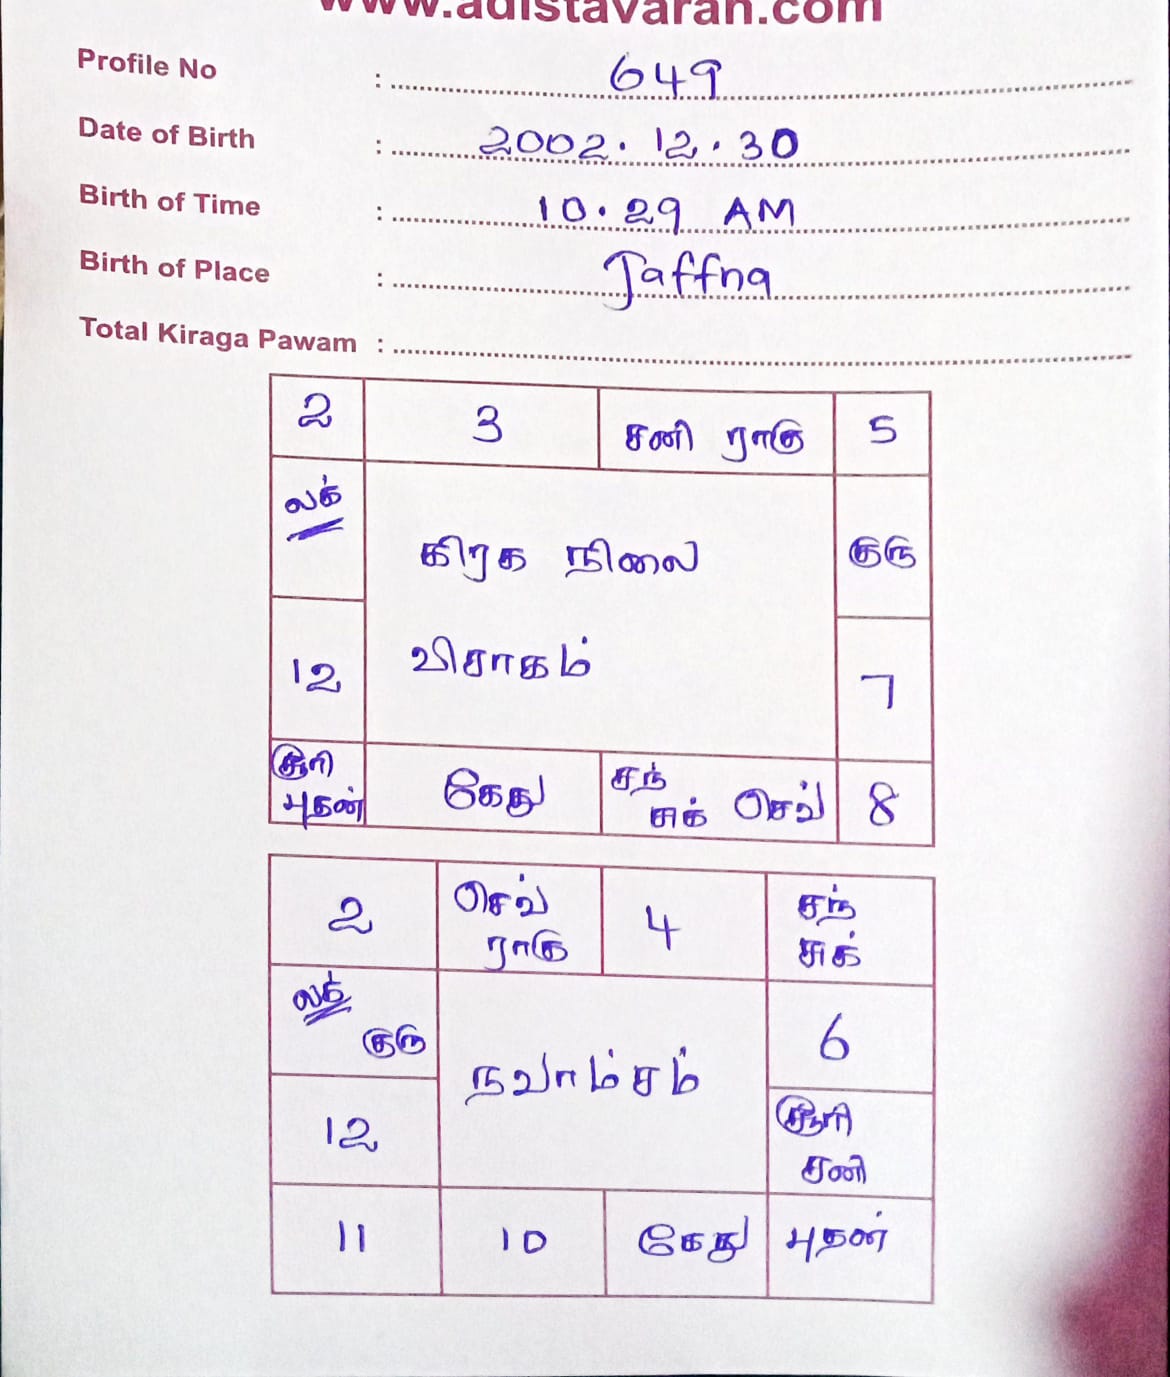 www.adistavaran.com
Profile No : 649
Date of Birth : 2002.12.30
Birth of Time : 10.29 AM
Birth of Place : Jaffna
Total Kiraga Pawam :
2 3 சனி ராகு 5
லக்
குரு
கிரக நிலை
விசாகம்
12 7
சூரி
புதன்
கேது
சந்
சுக் செவ்
8
2
செவ்
ராகு
4
சந்
சுக்
லக்
குரு
6
நவாம்சம்
12
சூரி
சனி
11 10 கேது புதன்